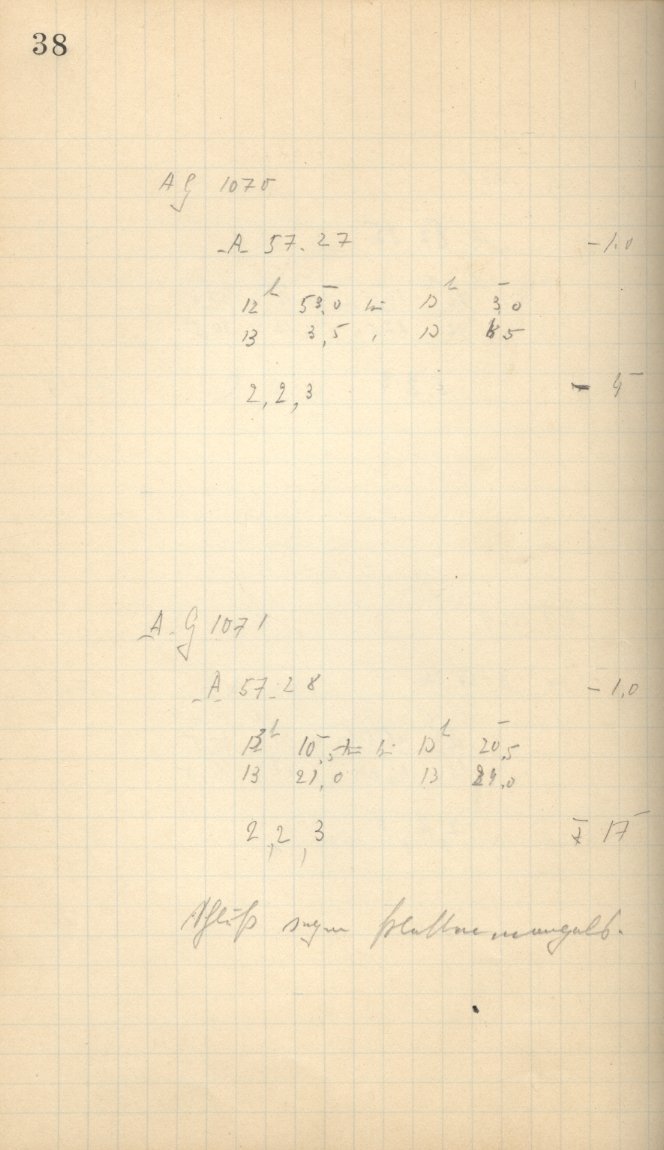 38
AG 1070
A 57.27 -1.0
12h 53,0 bis 13h 3,0
13 3,5 " 13 8,5
2,2,3
A.G 1071
A 57.28 -1,0
13h 10,5 bis 13h 20,5
13 21,0 13 24,0
2,2,3 I 17
Schluß wegen Plattenmangels.